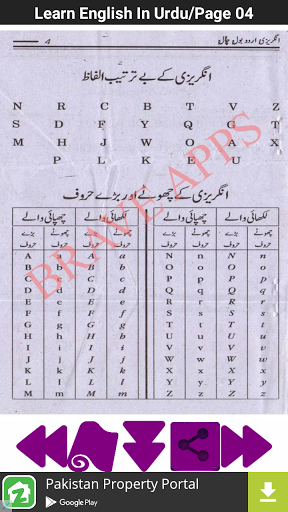 Learn English In Urdu/Page 04
4 انگریزی اردو بول چال
انگریزی کے بے ترتیب الفاظ
N R C B T V Z
S D F Y Q G T
M H J W O A X
P L K E U
BRAVE APPS
انگریزی کے چھوٹے اور بڑے حروف
چھپائی والے لکھائی والے چھپائی والے لکھائی والے
بڑے چھوٹے بڑے چھوٹے بڑے چھوٹے بڑے چھوٹے
حروف حروف حروف حروف حروف حروف حروف حروف
A a A a N n N n
B b B b O o O o
C c C c P p P p
D d D d Q q Q q
E e E e R r R r
F f F f S s S s
G g G g T t T t
H h H h U u U u
I i I i V v V v
J j J j W w W w
K k K k X x X x
L l L l Y y Y y
M m M m Z z Z z
Pakistan Property Portal
Google Play